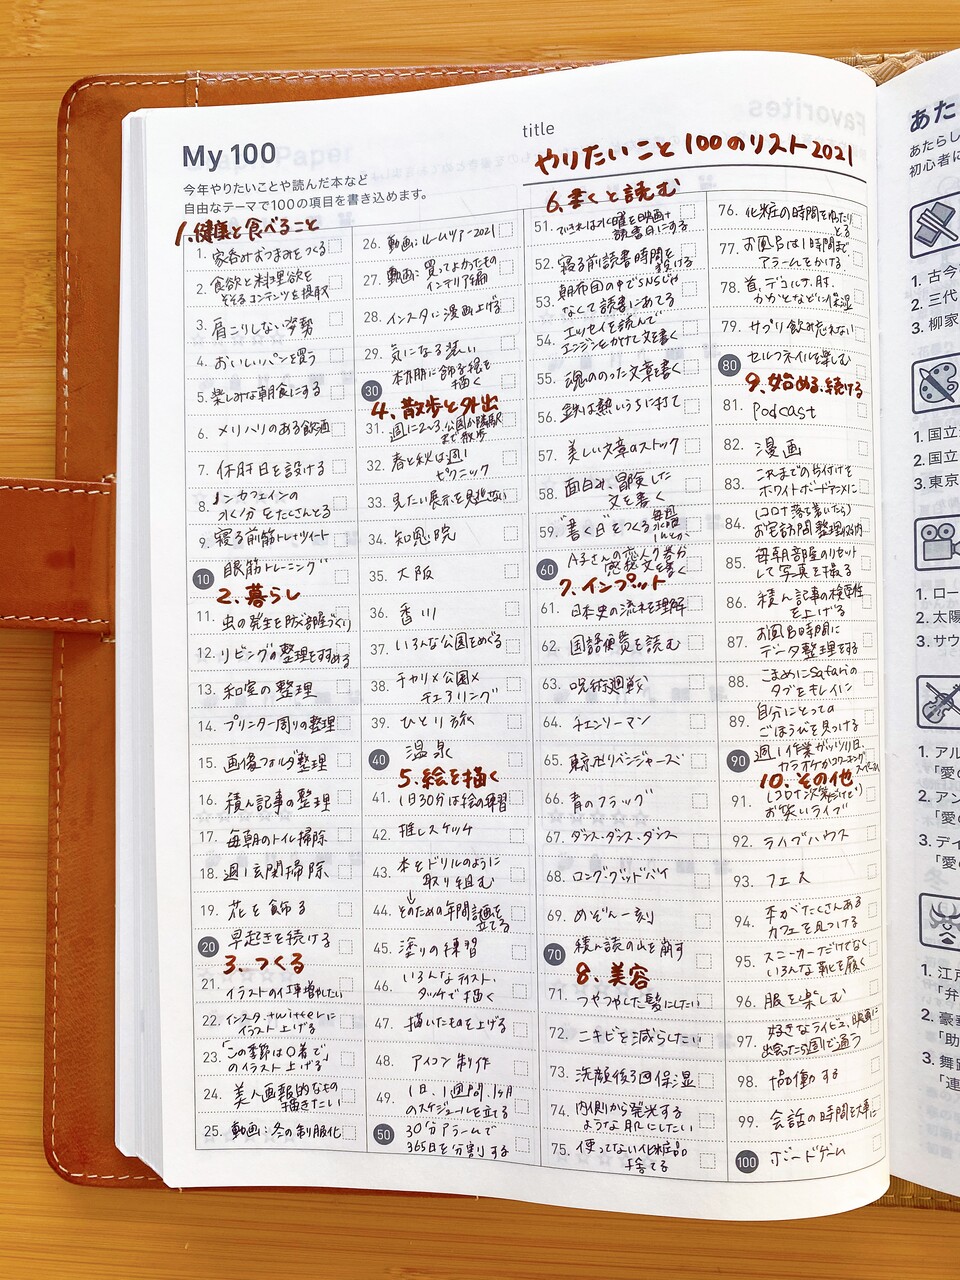 My 100
今年やりたいことや読んだ本など
自由なテーマで100の項目を書き込めます。
title
やりたいこと 100のリスト2021
1.健康と食べること
1. 家呑みおつまみをつくる
2. 食欲と料理欲を
そそるコンテンツを摂取
3. 肩こりしない姿勢
4. おいしいパンを買う
5. 楽しみな朝食にする
6. メリハリのある飲酒
7. 休肝日を設ける
8. ノンカフェインの
水分をたくさんとる
9. 寝る前筋トレナイト
10 眼筋トレーニング
2.暮らし
11. 虫の発生を防ぐ部屋づくり
12. リビングの整理をすすめる
13. 和室の整理
14. プリンター周りの整理
15. 画像フォルダ整理
16. 積ん記事の整理
17. 毎朝のトイレ掃除
18. 週1玄関掃除
19. 花を飾る
20 早起きを続ける
3.つくる
21. イラストの仕事増やしたい
22. インスタ、twitterに
イラスト上げる
23. 「この季節は〇着で」
のイラスト上げる
24. 美人画報的なもの
描きたい
25. 動画:冬の制服化
26. 動画:ルームツアー2021
27. 動画:買ってよかったもの
インテリア編
28. インスタに漫画上げる
29. 気になる装い
30 本棚に飾る絵を
描く
4.散歩と外出
31. 週に2〜3、公園か隣駅
まで散歩
32. 春と秋は週1
ピクニック
33. 見たい展示を見逃さない
34. 知恩院
35. 大阪
36. 香川
37. いろんな公園をめぐる
38. チャリ×公園×
チェアリング
39. ひとり旅
40 温泉
5.絵を描く
41. 1日30分は絵の練習
42. 推しスケッチ
43. 本をドリルのように
取り組む
↓
44. そのための年間計画を
立てる
45. 塗りの練習
46. いろんなテイスト、
タッチで描く
47. 描いたものを上げる
48. アイコン制作
49. 1日、1週間、1ヶ月
のスケジュールを立てる
50 30分アラームで
365日を分割する
6.書くと読む
51. できれば水曜を映画+
読書日にする
52. 寝る前読書時間を
設ける
53. 朝布団の中でSNSじゃ
なくて読書にあてる
54. エッセイを読んで
エンジンをかけて文を書く
55. 魂ののった文章書く
56. 鉄は熱いうちに打て
57. 美しい文章のストック
58. 面白み、冒険した
文を書く
59. "書く日"をつくる
60 A子さんの恋人7巻分
感想文を書く
7.インプット
61. 日本史の流れを理解
62. 国語便覧を読む
63. 呪術廻戦
64. チェンソーマン
65. 東京卍リベンジャーズ
66. 青のフラッグ
67. ダンス・ダンス・ダンス
68. ロング・グッドバイ
69. めぞん一刻
70 積ん読の山を崩す
8.美容
71. つやつやした髪にしたい
72. ニキビを減らしたい
73. 洗顔後3回保湿
74. 内側から発光する
ような肌にしたい
75. 使ってない化粧品
捨てる
76. 化粧の時間をゆったり
とる
77. お風呂は1時間まで
アラームをかける
78. 首、デコルテ、肘、
かかとなどに保湿
79. サプリ飲み忘れない
80 セルフネイルを楽しむ
9.始める、続ける
81. Podcast
82. 漫画
83. これまでの片付けを
ホワイトボードアニメに
84. (コロナ落ち着いたら)
お宅訪問 整理収納
85. 毎朝部屋のリセット
して写真を撮る
86. 積ん記事の検索性
を上げる
87. お風呂時間に
データ整理をする
88. こまめにSafariの
タブをキレイに
89. 自分にとっての
ごほうびを見つける
90 週1作業がッツリ日、
カラオケかコワーキングスペース
10.その他
91. (コロナ次第だけど)
お笑いライブ
92. ライブハウス
93. フェス
94. 本がたくさんある
カフェを見つける
95. スニーカーだけでなく
いろんな靴を履く
96. 服を楽しむ
97. 好きなライビュ、映画に
出会ったら週で通う
98. 協働する
99. 会話の時間を大事に
100 ボードゲーム
あた
あたらし
初心者に
1. 古今
2. 三代
3. 柳家
1. 国立
2. 国立
3. 東京
1. ロー
2. 太陽
3. サウ
1. アル
「愛の
2. アン
「愛の
3. デイ
「愛の
1. 江戸
「弁
2. 豪華
「助
3. 舞踊
「連